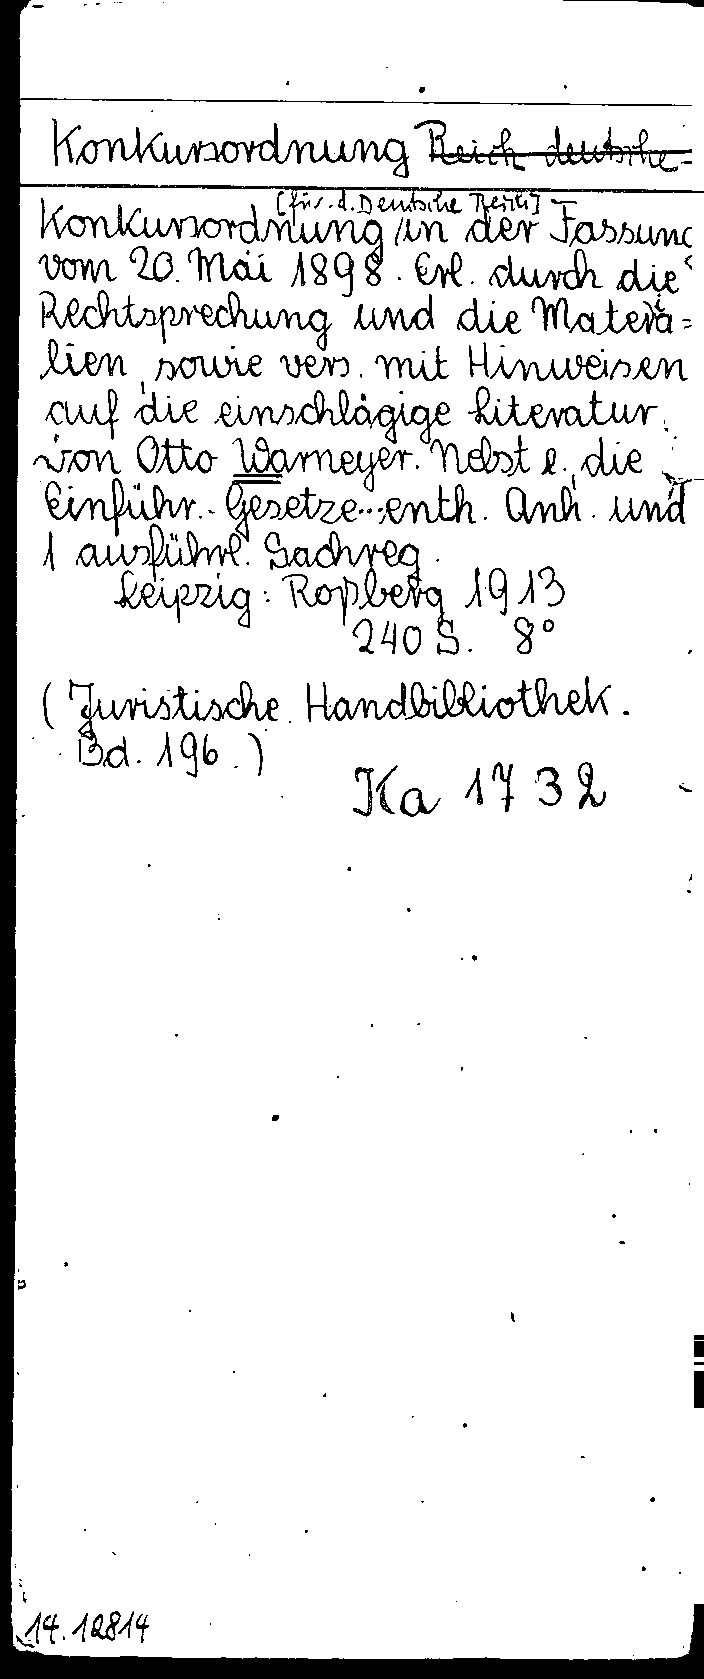 Konkursordnung Reich deutsche-
[für d. Deutsche Reich]
Konkursordnung in der Fassung
vom 20. Mai 1898. Erl. durch die
Rechtsprechung und die Materia=
lien, sowie vers. mit Hinweisen
auf die einschlägige Literatur.
von Otto Warneyer. Nebst e., die
Einführ.-Gesetze... enth. Anh. und
1 ausführl. Sachreg.
Leipzig: Roßberg 1913
240 S. 8°
(Juristische Handbibliothek.
Bd. 196.)
Ka 1732
14.12814